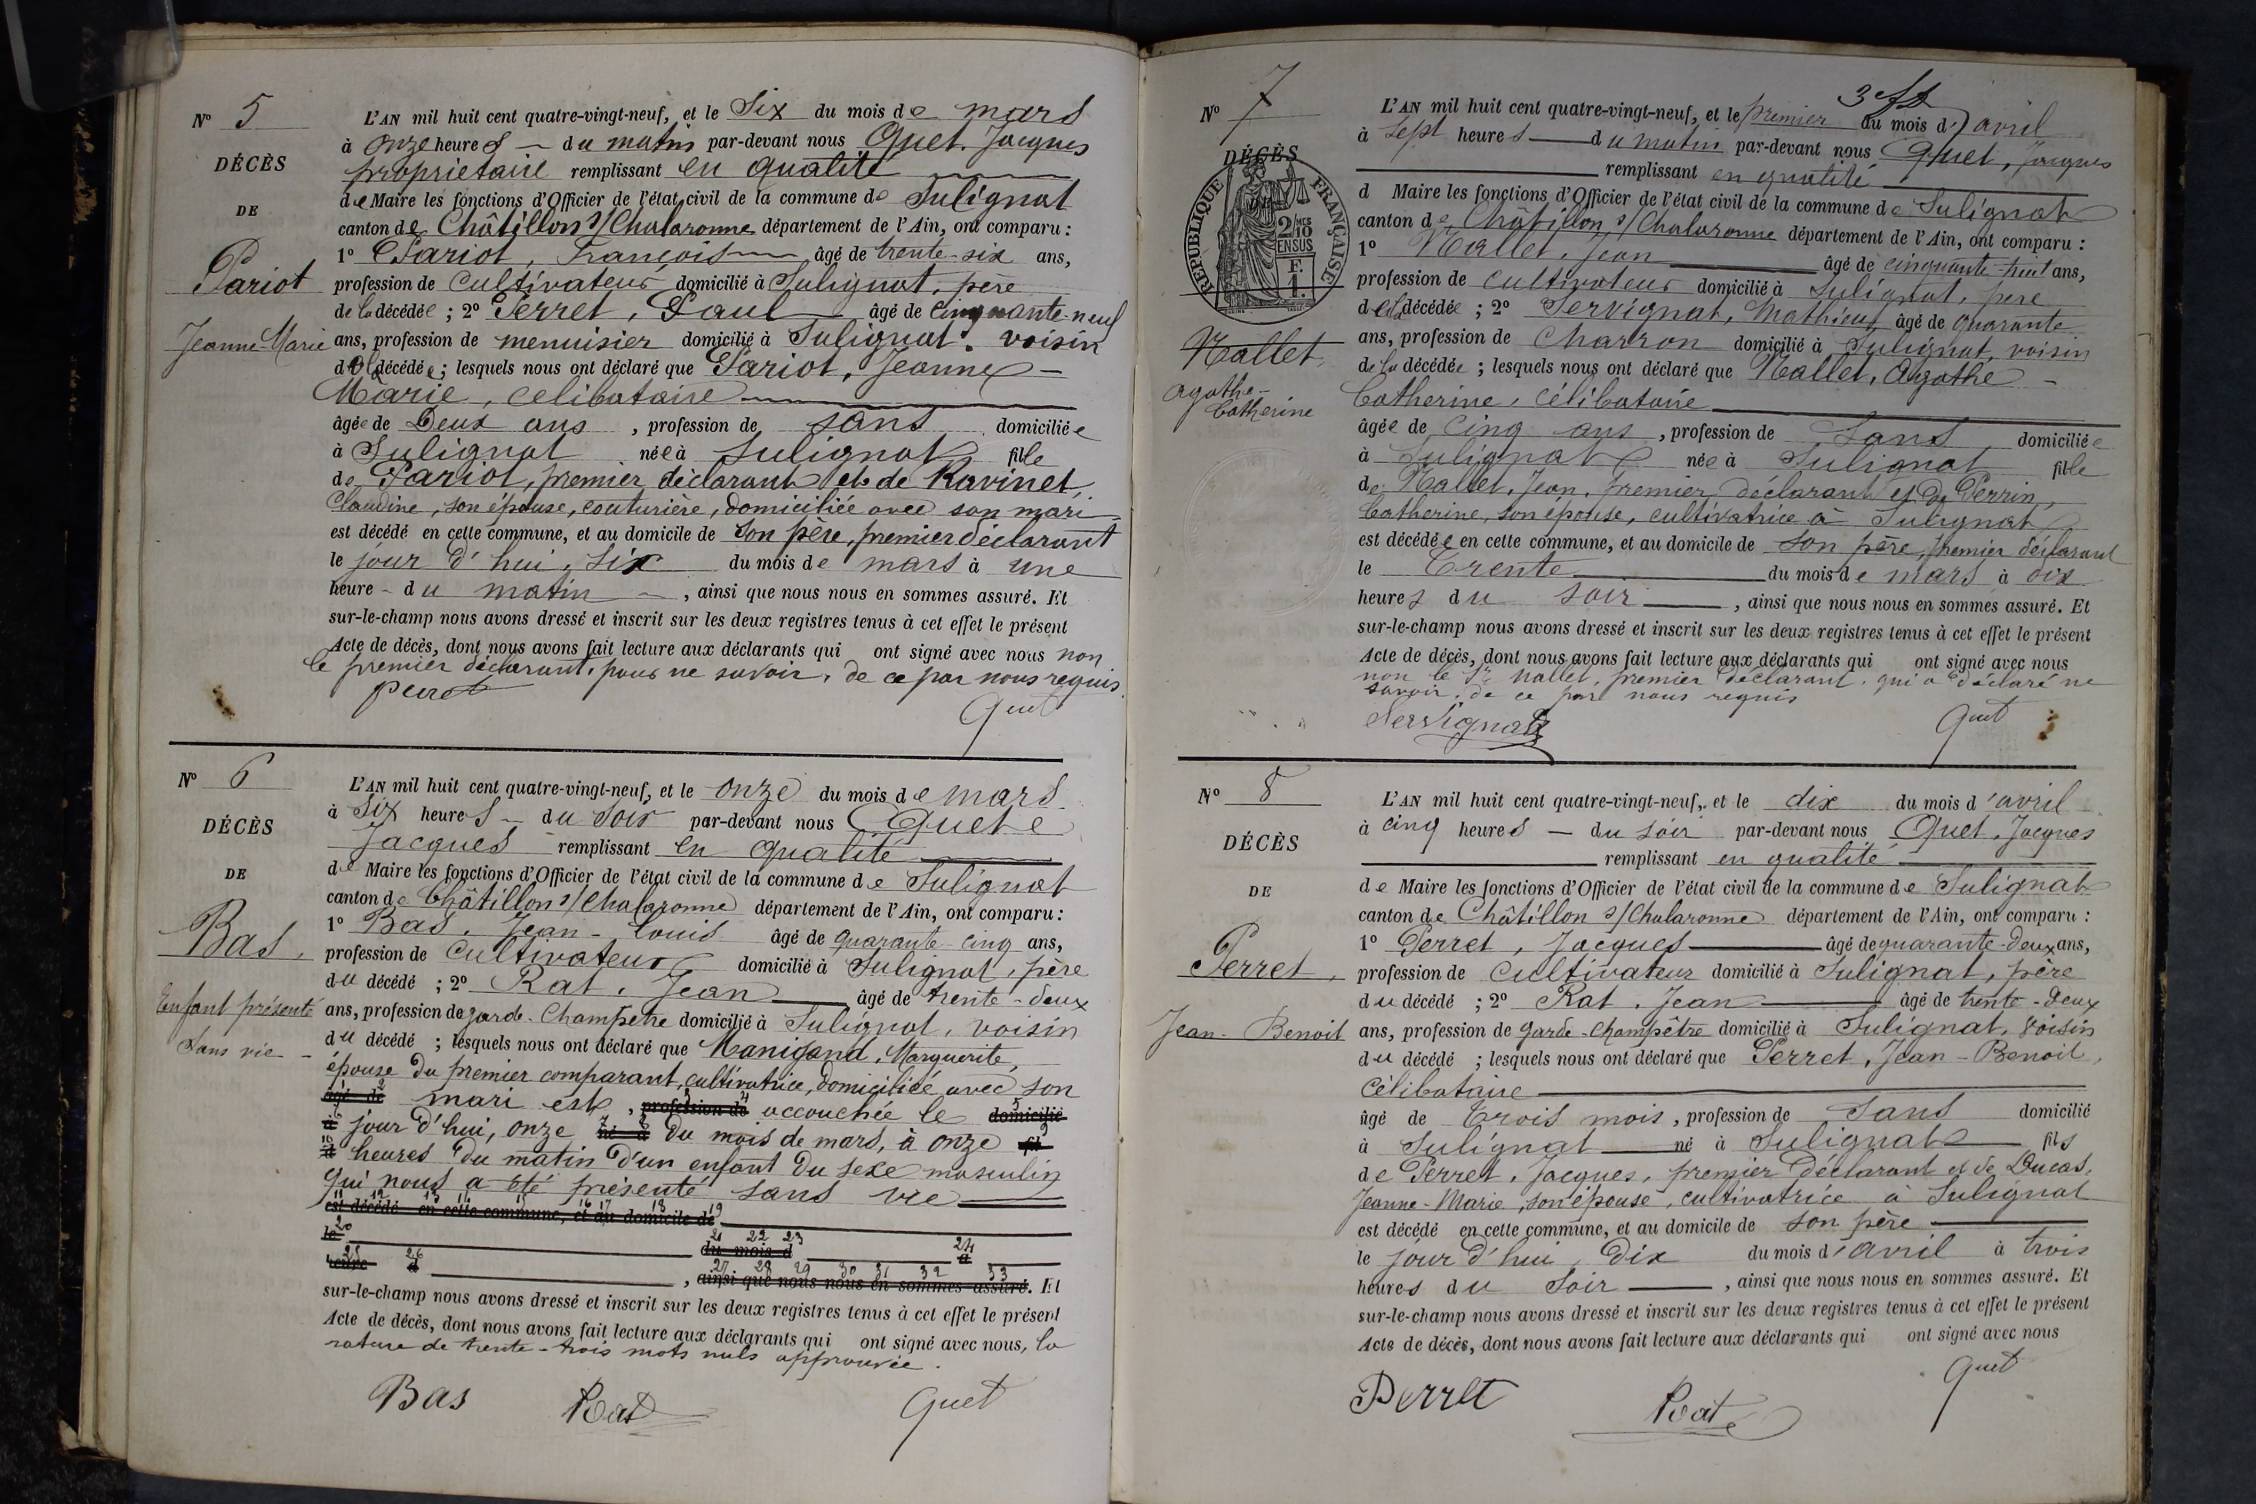 N° 5
DÉCÈS
DE
Pariot
Jeanne-Marie
L'AN mil huit cent quatre-vingt-neuf, et le Six du mois de mars
à onze heures du matin par-devant nous Quet, Jacques
propriétaire remplissant en qualité
de Maire les fonctions d'Officier de l'état civil de la commune de Sulignat
canton de Châtillon s/Chalaronne département de l'Ain, ont comparu :
1° Pariot, François âgé de trente-six ans,
profession de cultivateur domicilié à Sulignat, père
de la décédée ; 2° Perret, Paul âgé de cinquante-neuf
ans, profession de menuisier domicilié à Sulignat, voisin
de la décédée ; lesquels nous ont déclaré que Pariot, Jeanne
Marie, célibataire
âgée de Deux ans, profession de sans domiciliée
à Sulignat née à Sulignat fille
de Pariot, premier déclarant et de Ravinet,
Claudine, son épouse, couturière, domiciliée avec son mari
est décédé en cette commune, et au domicile de son père, premier déclarant
le jour d'hui, six du mois de mars à une
heure du matin, ainsi que nous nous en sommes assuré. Et
sur-le-champ nous avons dressé et inscrit sur les deux registres tenus à cet effet le présent
Acte de décès, dont nous avons fait lecture aux déclarants qui ont signé avec nous non
le premier déclarant, pour ne savoir, de ce par nous requis.
Perret Quet
N° 6
DÉCÈS
DE
Bas,
Enfant présenté
sans vie
L'AN mil huit cent quatre-vingt-neuf, et le onze du mois de mars
à six heures du soir par-devant nous Quet
Jacques remplissant en qualité
de Maire les fonctions d'Officier de l'état civil de la commune de Sulignat
canton de Châtillon s/Chalaronne département de l'Ain, ont comparu :
1° Bas, Jean-Louis âgé de quarante-cinq ans,
profession de cultivateur domicilié à Sulignat, père
du décédé ; 2° Rat, Jean âgé de trente-deux
ans, profession de garde-champêtre domicilié à Sulignat, voisin
du décédé ; lesquels nous ont déclaré que Manigand, Marguerite,
épouse du premier comparant, cultivatrice, domiciliée avec son
âgé de mari est, profession de accouchée le domicilié
à jour d'hui, onze né à du mois de mars, à onze fil
d heures du matin d'un enfant du sexe masculin
qui nous a été présenté sans vie
est décédé en cette commune, et au domicile de
le du mois d à
heure d, ainsi que nous nous en sommes assuré. Et
sur-le-champ nous avons dressé et inscrit sur les deux registres tenus à cet effet le présent
Acte de décès, dont nous avons fait lecture aux déclarants qui ont signé avec nous, la
rature de trente-trois mots nuls approuvée.
Bas Rat Quet
N° 7
DÉCÈS
DE
RÉPUBLIQUE FRANÇAISE
2/10
EN SUS
F.
1.
Nallet,
Agathe-
Catherine
L'AN mil huit cent quatre-vingt-neuf, et le premier du mois d'avril
à sept heures du matin par-devant nous Quet, Jacques
remplissant en qualité
d Maire les fonctions d'Officier de l'état civil de la commune de Sulignat
canton de Châtillon s/Chalaronne département de l'Ain, ont comparu :
1° Nallet, Jean âgé de cinquante-huit ans,
profession de cultivateur domicilié à Sulignat, père
de la décédée ; 2° Servignat, Mathieu, âgé de quarante
ans, profession de charron domicilié à Sulignat, voisin
de la décédée ; lesquels nous ont déclaré que Nallet, Agathe
Catherine, célibataire
âgée de cinq ans, profession de sans domiciliée
à Sulignat née à Sulignat fille
de Nallet, Jean, premier déclarant et de Perrin,
Catherine, son épouse, cultivatrice à Sulignat
est décédée en cette commune, et au domicile de son père, premier déclarant
le trente du mois de mars à dix
heures du soir, ainsi que nous nous en sommes assuré. Et
sur-le-champ nous avons dressé et inscrit sur les deux registres tenus à cet effet le présent
Acte de décès, dont nous avons fait lecture aux déclarants qui ont signé avec nous
non le Sr Nallet, premier déclarant, qui a déclaré ne
savoir, de ce par nous requis
Servignat Quet
N° 8
DÉCÈS
DE
Perret,
Jean-Benoit
L'AN mil huit cent quatre-vingt-neuf, et le dix du mois d'avril
à cinq heures du soir par-devant nous Quet, Jacques
remplissant en qualité
de Maire les fonctions d'Officier de l'état civil de la commune de Sulignat
canton de Châtillon s/Chalaronne département de l'Ain, ont comparu :
1° Perret, Jacques âgé de quarante-deux ans,
profession de cultivateur domicilié à Sulignat, père
du décédé ; 2° Rat, Jean âgé de trente-deux
ans, profession de garde-champêtre domicilié à Sulignat, voisin
du décédé ; lesquels nous ont déclaré que Perret, Jean-Benoit,
célibataire
âgé de trois mois, profession de sans domicilié
à Sulignat né à Sulignat fils
de Perret, Jacques, premier déclarant et de Ducas,
Jeanne-Marie, son épouse, cultivatrice à Sulignat
est décédé en cette commune, et au domicile de son père
le jour d'hui, dix du mois d'avril à trois
heures du soir, ainsi que nous nous en sommes assuré. Et
sur-le-champ nous avons dressé et inscrit sur les deux registres tenus à cet effet le présent
Acte de décès, dont nous avons fait lecture aux déclarants qui ont signé avec nous
Quet
Perret Rat